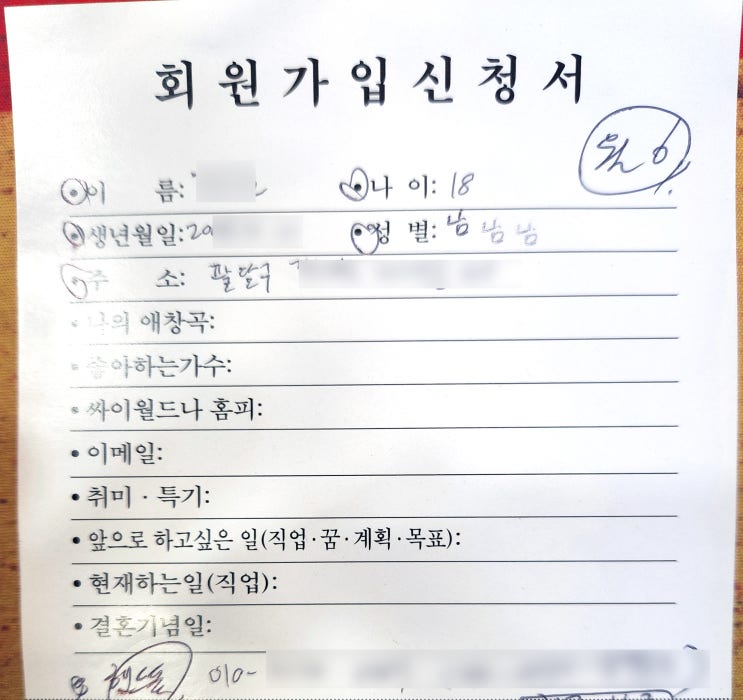 회원가입신청서
월 6
이 름: 나 이: 18
생년월일: 20 성 별: 남 남 남
주 소: 팔달구
• 나의 애창곡:
• 좋아하는가수:
• 싸이월드나 홈피:
• 이메일:
• 취미 · 특기:
• 앞으로 하고싶은 일(직업·꿈·계획·목표):
• 현재하는일(직업):
• 결혼기념일:
핸드폰 010-